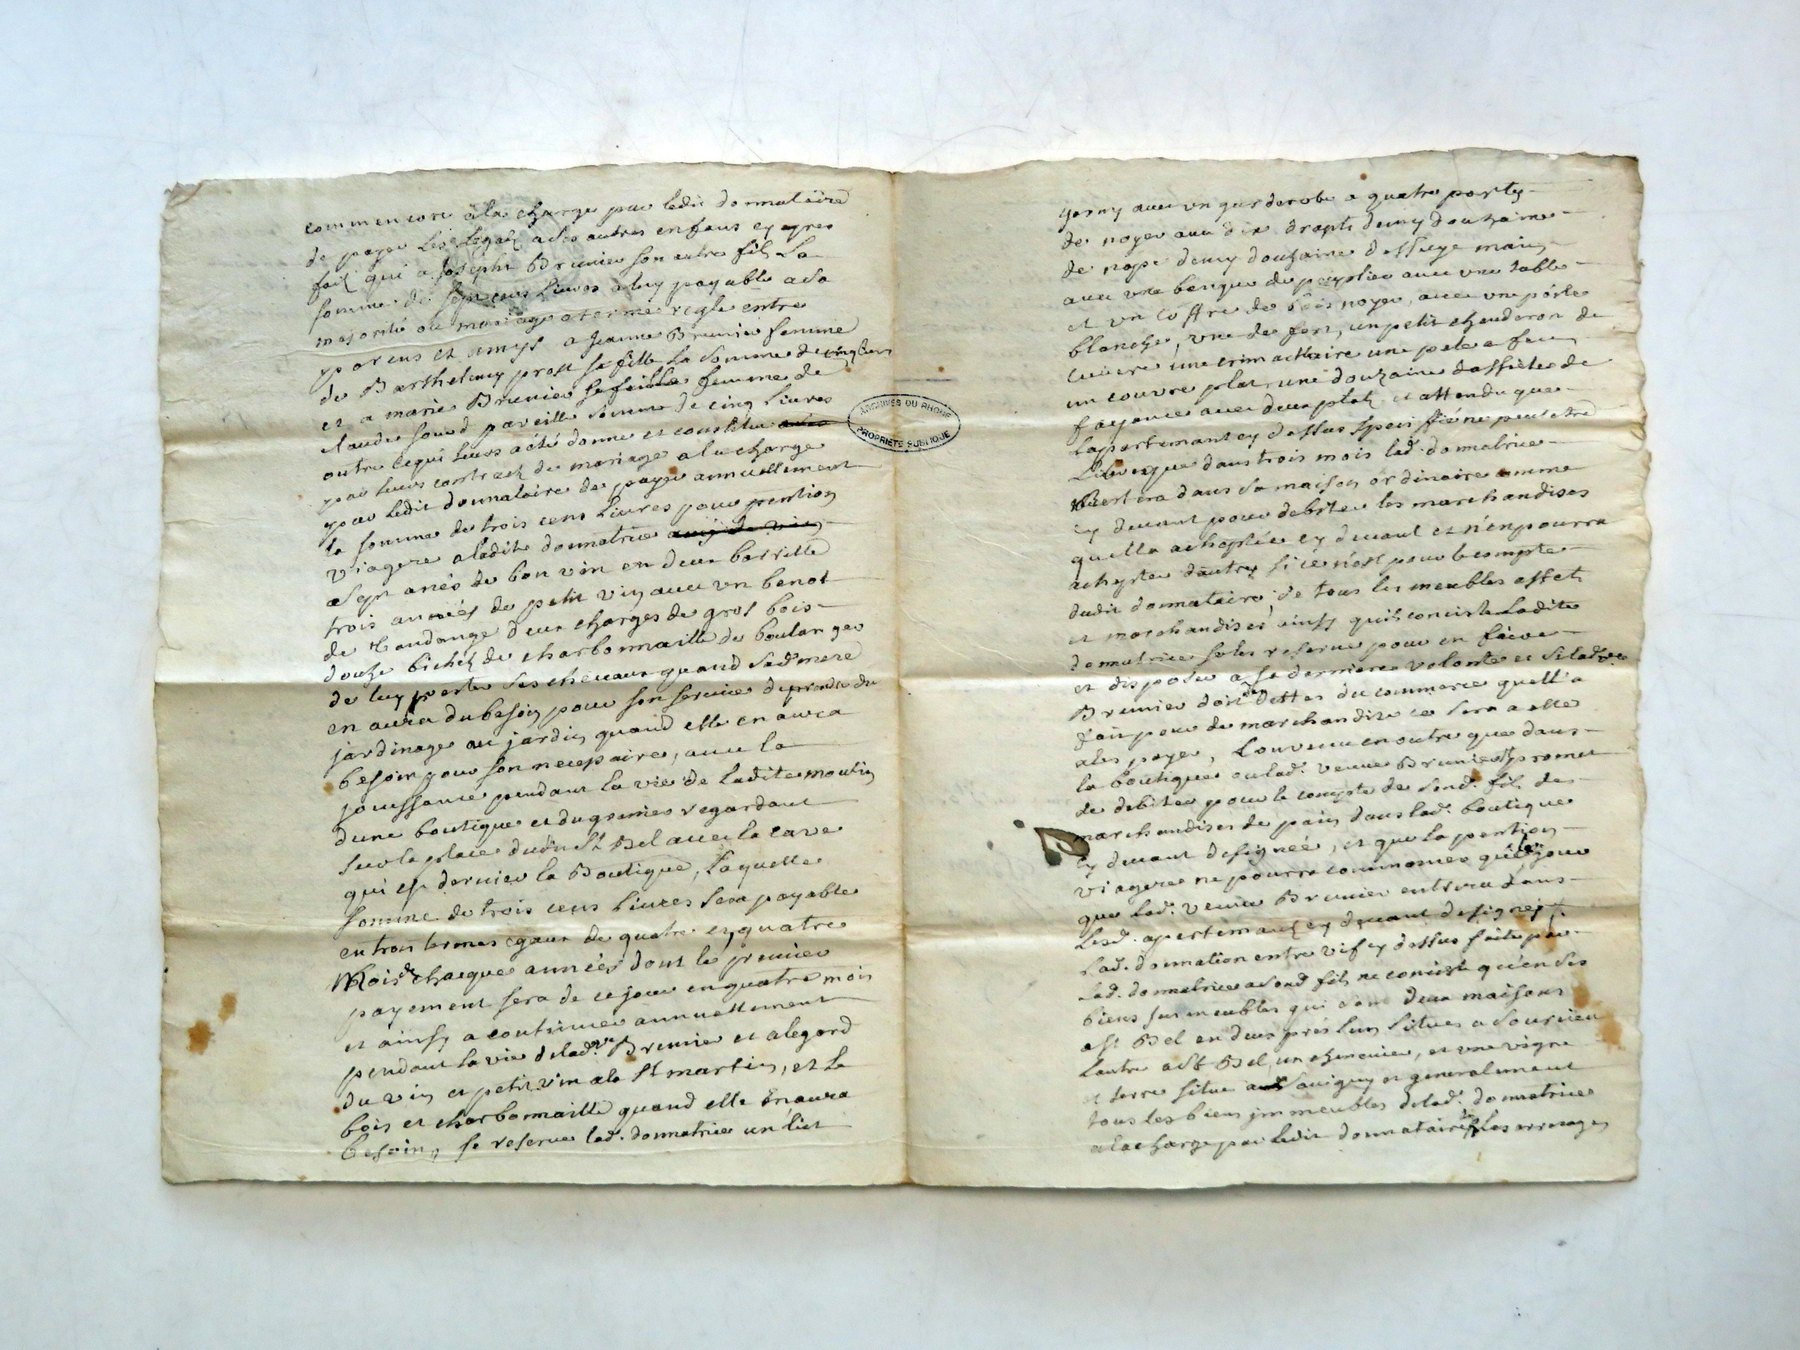 commencert a la charge par ledit donnataire
de payer les Legatz a ses autres enfans cy apres
fait qui a Joseph Brunier son autre fils La
somme de sept cens Livres a luy payable a sa
majorité ou mariage a terme regle entre
parens et amys a Jeanne Brunier femme
de Barthelemy prost sa fille La somme de cinq livres
et a marie Brunier sa feille femme de
claude sourd pareille somme de cinq Livres
outre ce qui leurs a été donné et constitué
par leurs contract de mariage a la charge
par ledit donnataire de payer annuellement
la somme de trois cens Livres pour pention
viagere a ladite donnatrice
asept anés de bon vin en deux barville
trois années de petit vin avec un benot
de vandange deux charges de gros bois
douze bichetz de charbonnaille de boulanger
de luy preter ses chevaux quand sad. mere
en aura du besoin pour son service de prendre du
jardinage au jardin quand elle en aura
besoin pour son necepaire, avec la
jouissance pendant la vie de Ladite moulin
dune boutique et du grenier regardant
sur la place dudit St Bel avec la cave
qui est dernier la Boutique, Laquelle
somme de trois cens Livres sera payable
en trois termes egaux de quatre en quatre
Mois de chaque années dont le premier
payement sera de ce jour en quatre mois
et ainsy a continuer annuellement
pendant la vie de lad. ve Brunier et alegard
du vin et petit vin a la St martin, et le
bois et charbonnaille quand elle en aura
besoin, se reserve lad. donnatrice un lict
garny avec un garderobe a quatre portes
de noyer avec dix draps demy douzaine
de nape demy douzaine dessuye mains
avec une banque de peuplier avec une table
et un coffre de bois noyer, avec une poile
blanche, une de fert, un petit chauderon de
cuivre une cramallaire une pele a feu
un couvre plat, une douzaine dassiete de
fayance avec deux platz et attendu que
lapartemant cy dessus specifié ne peut etre
Livré que dans trois mois lad. donnatrice
Restera dans sa maison ordinaire comme
cy devant pour debiter les marchandises
quella achaptée cy devant et n'en pourra
achepter dautres si ce n'est pour le compte
dudit donnataire, de tous les meubles effets
et marchandises ainsy quil consiste Ladite
donnatrice se les reserve pour en faire
et disposer a sa derniere volonté et si lad. ve
Brunier doit des dettes du commerce quell'a
fait pour de marchandise ce sera a elle
a les payer, Convenu en outre que dans
la boutique ou lad. veuve Brunier promet
de debiter pour le compte de sond. fils des
marchandises de pain dans lad. boutique
cy devant designée, et que la pention
viagere ne pourra commancer que du jour
que lad. veuve Brunier entrera dans
lesd. apertemanz cy devant designez
Lad. donnation entre vif cy dessus faite par
lad. donnatrice a sond. fils ne consiste qu'en ses
biens immeubles qui sont deux maisons
a St Bel en deux prés l'un situes a Sourcieu
Lautre a St Bel, un chenevier, et une vigne
et terre situé a Savigny et generalement
tous les biens immeubles de lad. donnatrice
a la charge par ledit donnataire les arrerages
ARCHIVES DU RHONE
PROPRIETE PUBLIQUE